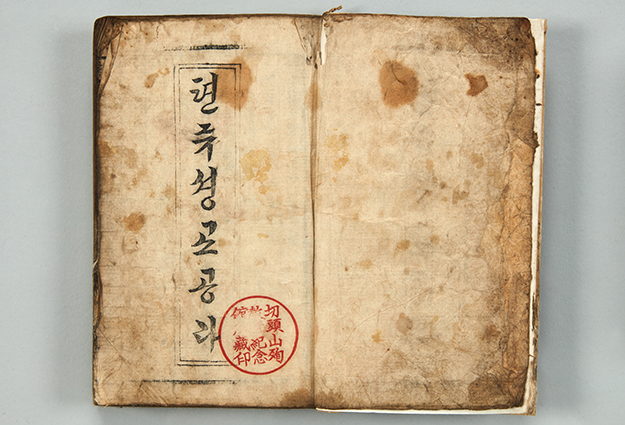 텬쥬셩교공과
切頭山殉
敎 紀念
館 藏印